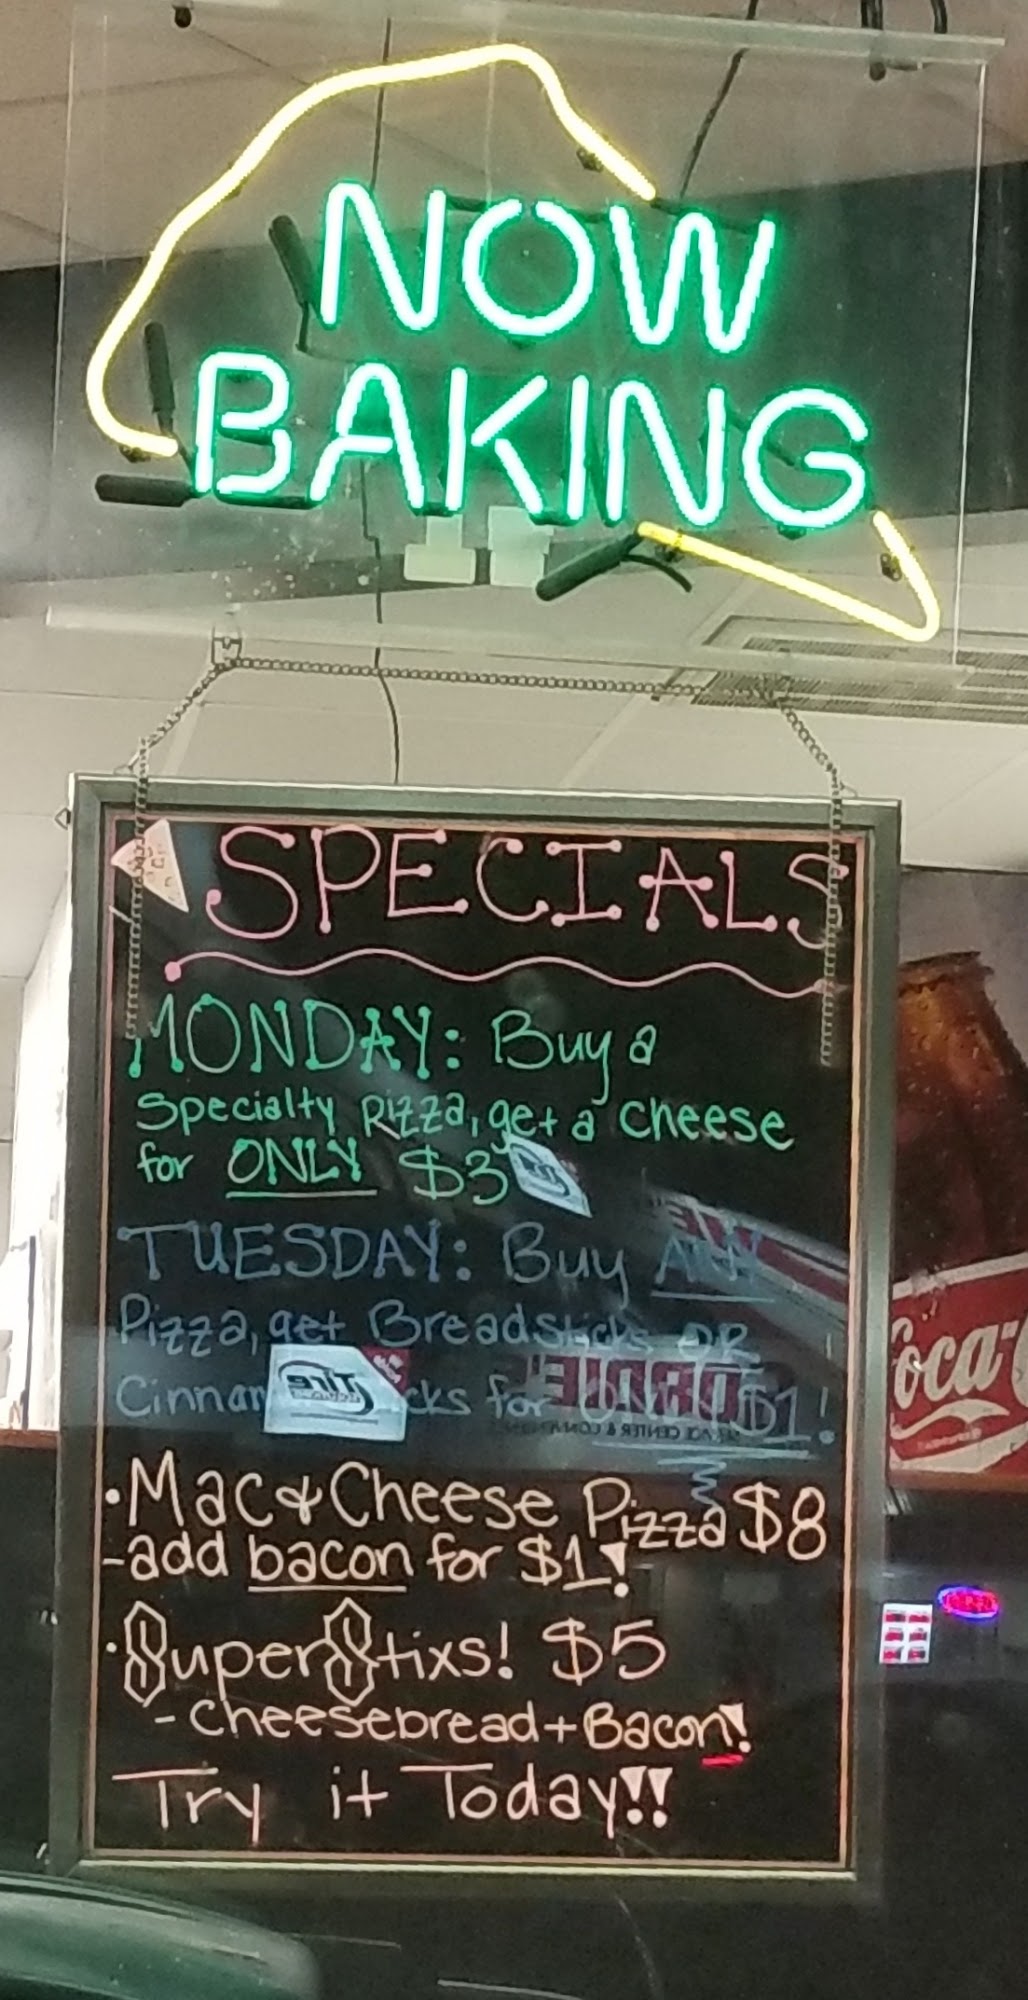 NOW
BAKING
SPECIALS
MONDAY: Buy a
Specialty Pizza, get a cheese
for ONLY $3
TUESDAY: Buy ANY
Pizza, get Breadsticks OR
for ONLY $1!
• Mac & Cheese Pizza $8
- add bacon for $1!
• SuperStixs! $5
- Cheesebread + Bacon!
Try it Today!!
Coca-
Tire